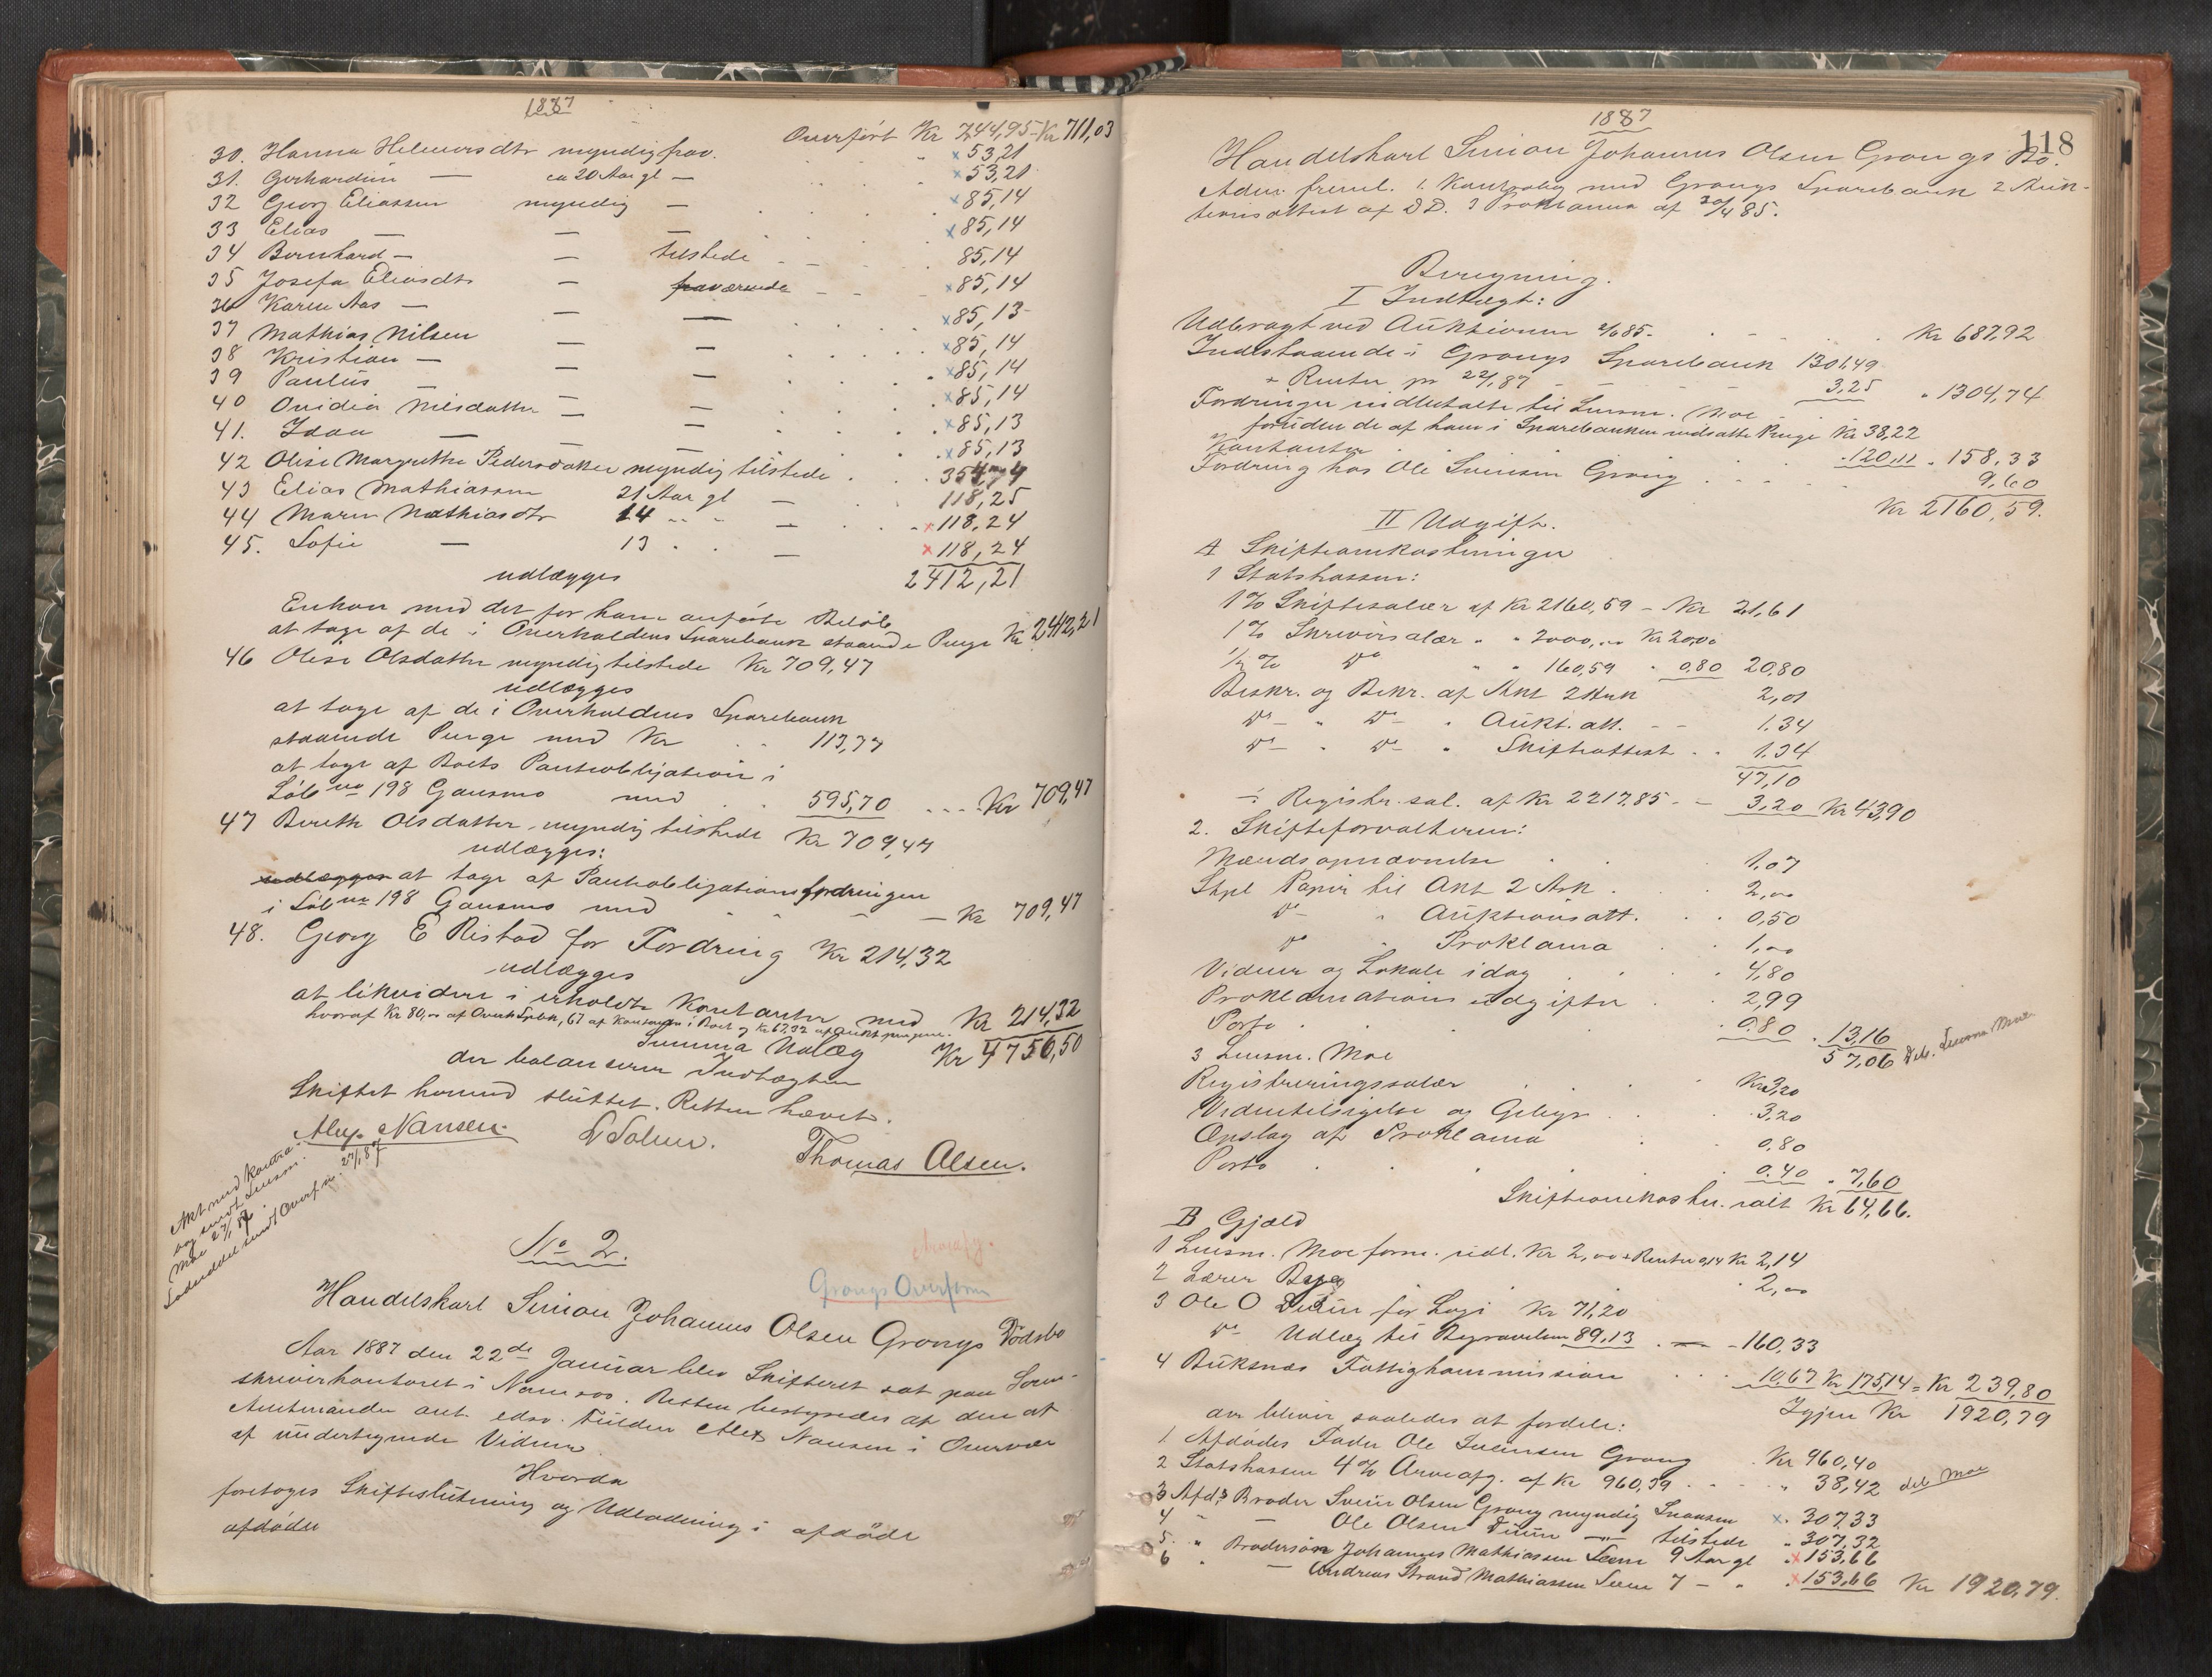 1887
Overført Kr 244,95 - Kr 711,03
30. Hanna Helmersdtr myndig frav. × 53,21
31. Gerhardine — ca 20 Aar gl — × 53,21
32 Georg Eliassen myndig — × 85,14
33 Elias — — — × 85,14
34 Bernhard — — tilstede 85,14
35 Josefa Eliasdtr — fraværende × 85,14
36 Karen Aas — — — × 85,13
37 Mathias Nilsen — — × 85,14
38 Kristian — — — × 85,14
39 Paulus — — — × 85,14
40 Ovidia Nilsdatter — — × 85,13
41. Idda — — × 85,13
42 Olise Margrethe Pedersdatter myndig tilstede 354,74
43 Elias Mathiassen 21 Aar gl — 118,25
44 Maren Mathiasdtr 14 " " — × 118,24
45. Sofie — 13 " " — × 118,24
udlægges 2412,21
Enhver med det for ham anførte Beløb
at tage af de i Overhaldens Sparebank staaende Penge Kr 2412,21
46 Olise Olsdatter myndig tilstede Kr 709,47
udlægges
at tage af de i Overhaldens Sparebank
staaende Penge med Kr 113,77
at tage af Boets Pantobligation i
Løb no 198 Gansmo med 595,70 Kr 709,47
47 Bereth Olsdatter, myndig tilstede Kr 709,47
udlægges:
udlægges at tage af Pantobligationsfordringen
i Løb no 198 Gansmo med — Kr 709,47
48. Georg E Ristad for Fordring Kr 214,32
udlægges
at likvidere i erholdte Kontanter med Kr 214,32
hvoraf Kr 80,00 af Overh. Spbk, 67 af Kontanten i Boet og Kr 67,32 af Auktpengene.
Summa Udlæg Kr 4756,50
der balanserer Indtægten
Skiftet hermed sluttet. Retten hævet.
Alex. Nansen. Thomas Olsen.
Akt med Kontra-
bog sendt Lensm.
Moe 27/1 87.
Loddeddel sendt Overfm. 27/1 87
No 2.
Grongs Overform
Handelskarl Simon Johannes Olsen Grongs Dødsbo
Aar 1887 den 22de Januar blev Skifteret sat paa Soren-
skriverkontoret i Namsos. Retten bestyredes af den af
Amtmanden ant. edsv. Fuldm Alex Nansen i Overvær
af undertegnede Vidner
Hvorda
foretoges Skifteslutning og Udlodning i afdøde
afdøde
1887
118
Handelskarl Simon Johannes Olsen Grongs Bo.
Adm. freml. 1. Kontrabog med Grongs Sparebank 2 Auk-
tionsattest af DD. 3 Proklama af 20/4 85.
Beregning.
I Indtægt:
Udbragt ved Auktionen 2/6 85 Kr 687,92
Indestaaende i Grongs Sparebank 1301,49
+ Renter pr 22/1 87 3,25 " 1304,74
Fordringer indbetalte til Lensm. Moe
foruden de af ham i Sparebanken indsatte Penge Kr 38,22
Kontanter 120,11 " 158,33
Fordring hos Ole Svensen Grong 9,60
Kr 2160,59.
II Udgift.
A Skifteomkostninger
1 Statskassen:
1 % Skiftesalær af Kr 2160,59 — Kr 21,61
1 % Skriversalær " " 2000,00 Kr 20,00
1/2 % do " " 160,59 " 0,80 20,80
Beskr. og Bekr. af Akt 2 Ark 2,01
do — " do — " Aukt. att. 1,34
do — " do — " Skifteattest 1,34
47,10
÷ Registr. sal. af Kr 2217,85 — 3,20 Kr 43,90
2. Skifteforvalteren:
Mændsopnævnelse 1,07
Stpl Papir til Akt 2 Ark 2,00
do " Auktionsatt. 0,50
do " Proklama 1,00
Vidner og Lokale idag 4,80
Proklamations udgifter 2,99
Porto 0,80 " 13,16
57,06 Deb. Lensm Moe
3 Lensm. Moe
Registreringssalær Kr 3,20
Vidnetilsigelse og Gebyr 3,20
Opslag af Proklama 0,80
Porto 0,40 " 7,60
Skifteomkostn. ialt Kr 64,66.
B Gjæld
1 Lensm. Moe form. udl. Kr 2,00 + Renter 0,14 Kr 2,14
2 Lærer 2,00
3 Ole O Duun for Logi Kr 71,20
do Udlæg til Begravelsen 89,13 — 160,33
4 Buksnæs Fattigkommission 10,67 Kr 175,14 = Kr 239,80
Igjen Kr 1920,79
der bliver saaledes at fordele:
1 Afdødes Fader Ole Svensen Grong Kr 960,40
2 Statskassen 4 % Arveafg. af Kr 960,39 " 38,42 deb Moe
3 Afd.s Broder Svein Olsen Grong myndig Snaasen × " 307,33
4 — — Ole Olsen Duun — tilstede " 307,32
5. " Brodersøn Johannes Mathiassen Seem 9 Aar gl × 153,66
6 " — Andreas Strand Mathiassen Seem 7 — " × 153,66 Kr 1920,79.